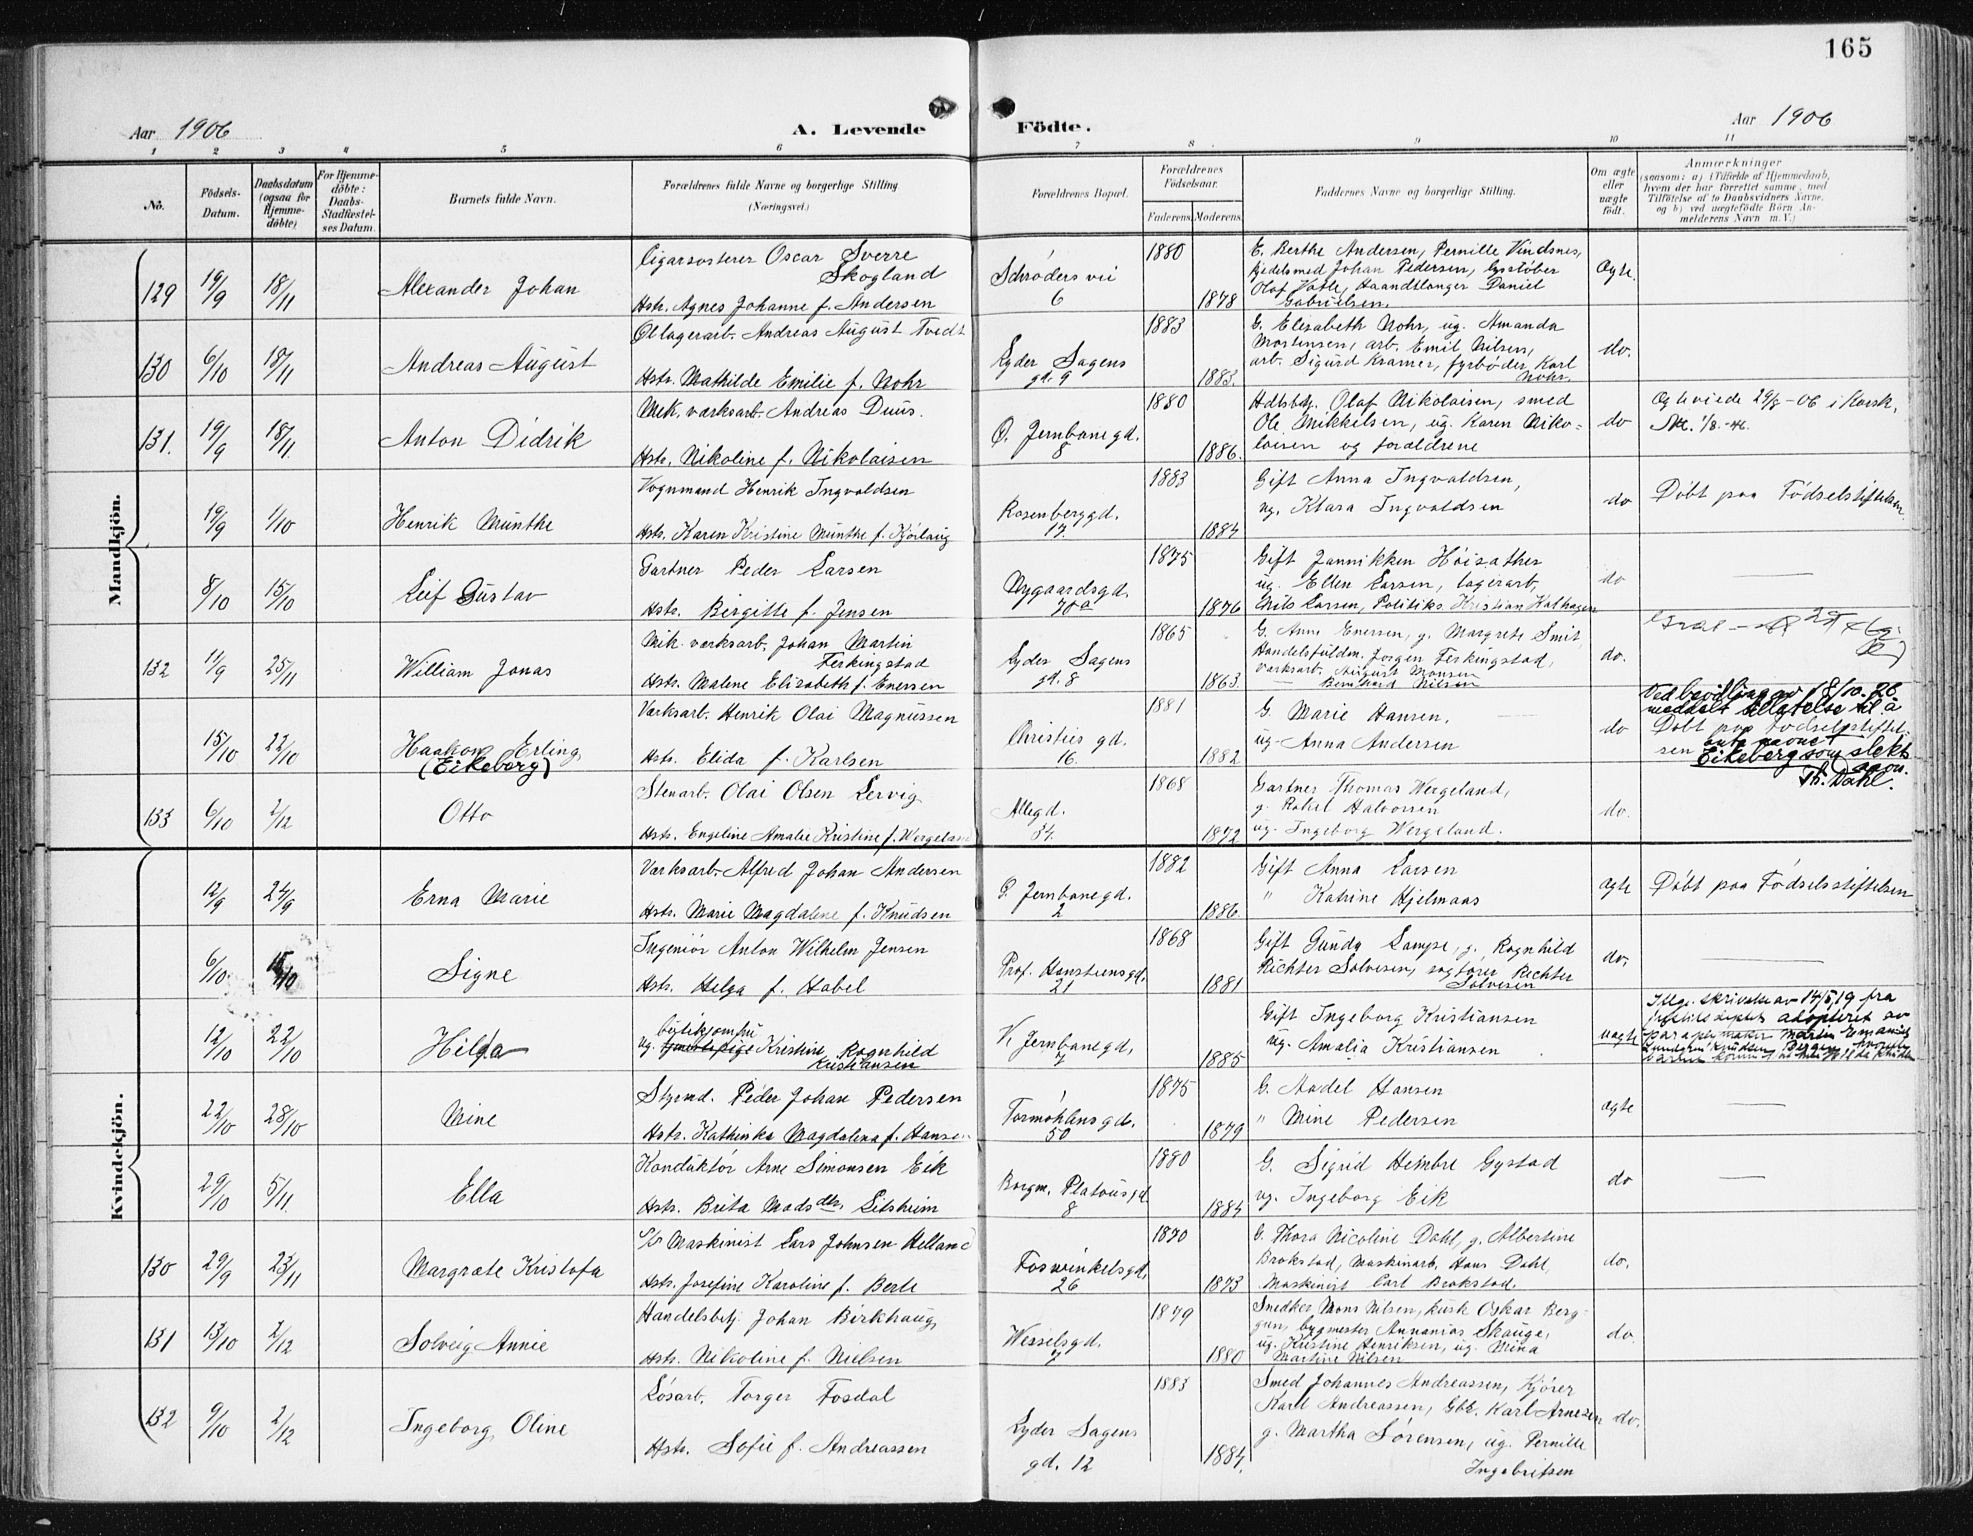 165
Aar 1906 A. Levende Födte. Aar 1906
1 2 3 4 5 6 7 8 9 10 11
No.
Födsels-
Datum.
Daabsdatum
(ogsaa for
Hjemme-
döbte)
For Hjemme-
döbte:
Daabs-
Stadfæstel-
ses Datum.
Barnets fulde Navn.
Forældrenes fulde Navne og borgerlige Stilling
(Næringsvei.)
Forældrenes Bopæl.
Forældrenes
Födselsaar.
Faderens Moderens
Faddernes Navne og borgerlige Stilling.
Om ægte
eller
uægte
födt.
Anmærkninger
(saasom: a) i Tilfælde af Hjemmedaab,
hvem der har forrettet samme, med
Tilföielse af to Daabsvidners Navne,
og b) ved uægtefödte Börn An-
melderens Navn m. V.)
Mandkjön.
129 19/9 18/11 Alexander Johan
Cigarsorterer Oscar Sverre
Skogland
Hstr. Agnes Johanne f. Andersen
Schrøders vei
6
1880
1878
E. Berthe Andersen, Pernille Vindsnes,
Kjedelsmed Johan Pedersen, Lysstøber
Olaf Vatle, Haandtlanger Daniel
Gabrielsen.
Ægte.
130 6/10 18/11 Andreas August
Øllagerarb. Andreas August Tvedt
Hstr. Mathilde Emilie f. Nohr
Lyder Sagens
gd. 9
1883
1883.
G. Elisabeth Nohr, ug. Amanda
Mortensen, arb. Emil Nilsen,
arb. Sigurd Kramer, fyrbøder Karl
Nohr.
do.
131. 19/9 18/11 Anton Didrik
Mek. værksarb. Andreas Duus.
Hstr. Nikoline f. Nikolaisen
Ø. Jernbanegd.
8
1880
1886.
Hdlsbtj. Olaf Nikolaisen, smed
Ole Mikkelsen, ug. Karen Niko=
laisen og forældrene
do
19/9 1/10 Henrik Munthe
Vognmand Henrik Ingvaldsen
Hstr. Karen Kristine Munthe f. Kjørlaug
Rosenberggd.
17.
1883
1884
Gift Anna Ingvaldsen,
ug. Klara Ingvaldsen
do
Døbt paa Fødselsstiftelsen.
8/10 15/10 Leif Gustav
Gartner Peder Larsen
Hstr. Birgitte f. Jensen
Nygaardsgd.
70a
1875
1876
Gift Jannikken Høisæther
ug. Ellen Larsen, lagerarb.
Nils Larsen, Politiks. Kristian Kalhagen
do
132 11/9 25/11 William Jonas
Mek. værksarb. Johan Martin
Ferkingstad
Hstr. Malene Elizabeth f. Enersen
Lyder Sagens
gd. 8
1865
1863.
G. Anne Enersen, g. Margrete Smit,
Handelsfuldm. Jørgen Ferkingstad,
værksarb. August Monsen
— Bernhard Nilsen
do.
15/10 22/10 Haakon Erling
(Eikeberg)
Værksarb. Henrik Olai Magnussen
Hstr. Elida f. Karlsen
Christies gd.
16.
1881
1882
G. Marie Hansen,
ug. Anna Andersen
do
Ved bevilling av 18/10.26
meddelt tillatelse til å
Døbt paa Fødselsstiftel
sen
anta navnet
Eikeberg som slekts
navn.
Th. Dahl.
133 6/10 2/12 Otto
Stenarb. Olai Olsen Lervig
Hstr. Engeline Amalie Kristine f. Wergeland
Allegd.
1868
1872
Gartner Thomas Wergeland,
g. Rakel Halvorsen
ug. Ingeborg Wergeland.
do.
Kvindekjön.
12/9 24/9 Erna Marie
Værksarb. Alfred Johan Andersen
Hstr. Marie Magdalene f. Knudsen
Ø. Jernbanegd.
2
1882
1886.
Gift Anna Larsen
" Katrine Hjelmaas
ægte
Døbt paa Fødselsstiftelsen
6/10 15/10 Signe
Ingeniør Anton Wilhelm Jensen
Hstr. Helga f. Habel
Prof. Hansteensgd.
21
1868
1881
Gift Gunda Lampe, g. Ragnhild
Richter Solvesen, sagfører Richter
Solvesen
do.
12/10 22/10 Hilda
butikjomfru
ug. Kristine Ragnhild
Kristiansen
V. Jernbanegd.
7
1885
Gift Ingeborg Kristiansen
ug. Amalia Kristiansen
uægte
Iflge. skrivelse av 14/5.19 fra
adopteret av
paraplymaker Martin Emanuel
Knudsen Bergen, hvorefter
22/10 28/10 Mine
Styrmd. Peder Johan Pedersen
Hstr. Kathinka Magdalena f. Hansen
Tormøhlensgd.
50
1875
1879
G. Aadel Hansen
" Mine Pedersen
ægte
29/10 5/11. Ella
Konduktør Arne Simonsen Eik
Hstr. Brita Madsdtr. Lilsheim
Borgm. Platousgd.
8
1880
1884
G. Sigrid Heimbre Gystad
ug. Ingeborg Eik
do
130 29/9 23/11 Margræte Kristofa
S/S Maskinist Lars Johnsen Helland
Hstr. Josefine Karoline f. Berle
Foswinkelsgd.
26
1870
1873
G. Thora Nicoline Dahl, g. Albertine
Brokstad, Maskinarb. Hans Dahl,
Maskinist Carl Brokstad.
do.
131 13/10 2/12 Solveig Annie
Handelsbetj. Johan Birkhaug
Hstr. Nikoline f. Nielsen
Wesselsgd.
7
1879
1880
Snedker Mons Nilsen, kusk Oskar Berg-
gren, bygmester Annanias Skauge,
ug. Kristine Henriksen, ug. Mina
Martine Nilsen
do.
132 9/10 2/12 Ingeborg Oline
Løsarb. Torger Fosdal
Hstr. Sofie f. Andreassen
Lyder Sagens
gd. 12
1883
1884.
Smed Johannes Andreassen, Kjører
Karl Andreassen, Gbr. Karl Arnesen
g. Martha Sørensen, ug. Pernille
Ingebritsen
do.